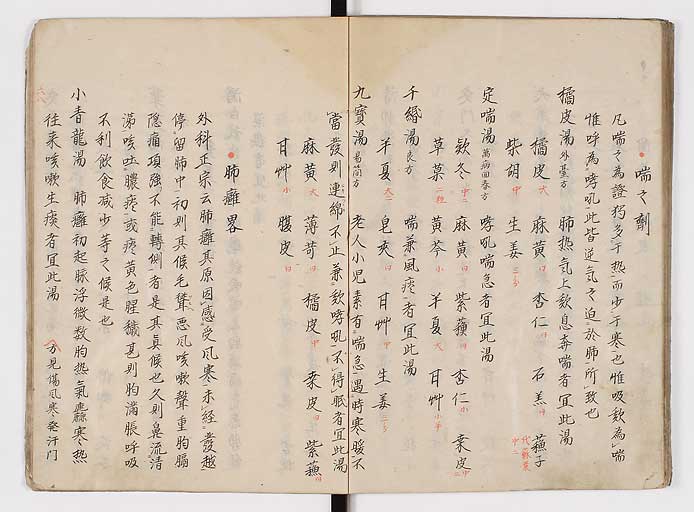 喘之劑
凡喘之為證狗多于熱而少于寒也惟吸欬為喘
惟呼為哮吼此皆逆氣之迫於肺所致也
橘皮湯 外臺方 肺熱气上欬息奔喘者宜此湯
橘皮 大 麻黄 中 杏仁 中 石羔 中 蘓子
代蘇葉
柴胡 中 生姜 三分
定喘湯 萬病回春方 哮吼喘急者宜此湯
欵冬 中 麻黄 中 紫蘓 中 杏仁 小 桒皮 中
草菓 一粒 黄芩 小 半夏 大 甘艸 小半
千緡湯 良方 喘兼風痰者宜此湯
半夏 大 皂莢 中 甘艸 中 生姜 二分
九寳湯 易简方 老人小児素有喘急遇時寒暖不
當發則連綿不止兼欬哮吼不得眠者宜此湯
麻黄 大 薄苛 中 橘皮 中 桒皮 中 紫蘓 中
甘艸 小 腹皮 中
肺癰畧
外科正宗云肺癰其原因感受風寒未経發越
停留肺中初則其候毛聳悪風咳嗽聲重胸膈
隠痛項強不能轉側者是其真候也久則鼻流清
涕咳吐膿痰或痰黄色腥穢甚則胸滿脹呼吸
不利飲食減少等之候是也
小青龍湯 肺癰初起脉浮微数胸熱氣麤寒熱
往来咳嗽生痰者宜此湯 方見傷風寒發汗門